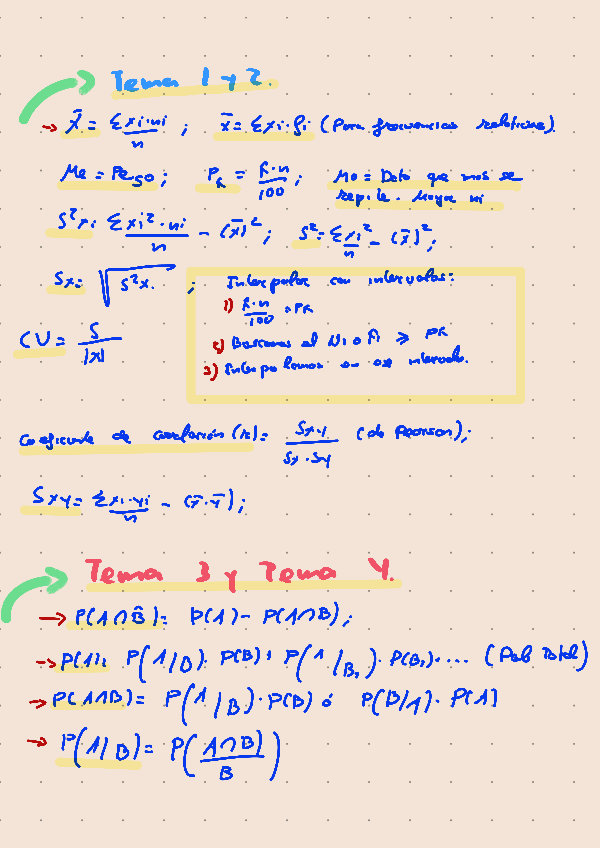 Tema 1 y 2.
→ x̄ = Σxi·ni / n ; x̄ = Σxi·fi (Para frecuencias relativas).
Me = Pe50 ; PR = R·n / 100 ; Mo = Dato que mas se
repite. Mayor ni
S²xi Σxi²·ni / n - (x̄)² ; S² = Σxi² / n - (x̄)² ;
Sx = √S²x. ; Interpolar con intervalos:
1) R·n / 100 = PR
CV = S / |x̄|
2) Buscamos el Ni o Fi > PR
3) Interpolamos en ese intervalo.
Coeficiente de correlación (r) = Sx·y / Sx·Sy (de Pearson) ;
Sxy = Σxi·yi / n - (x̄·ȳ) ;
Tema 3 y Tema 4.
→ P(A∩B̄) = P(A) - P(A∩B) ;
→ P(A) = P(A/B) · P(B) + P(A/B₁) · P(B₁) · ... (Prob Total)
→ P(A∩B) = P(A/B) · P(B) ó P(B/A) · P(A)
→ P(A/B) = P(A∩B / B)